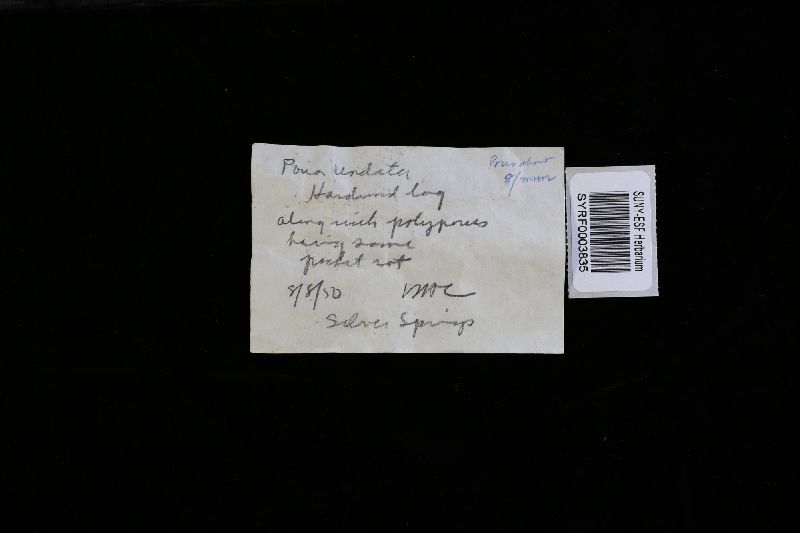 Poria undata
Pores about
8/mm
Hardwood log
along with polyporus
having same
pocket rot
8/8/50
Silver Springs
SUNY-ESF Herbarium
SYRF0003835